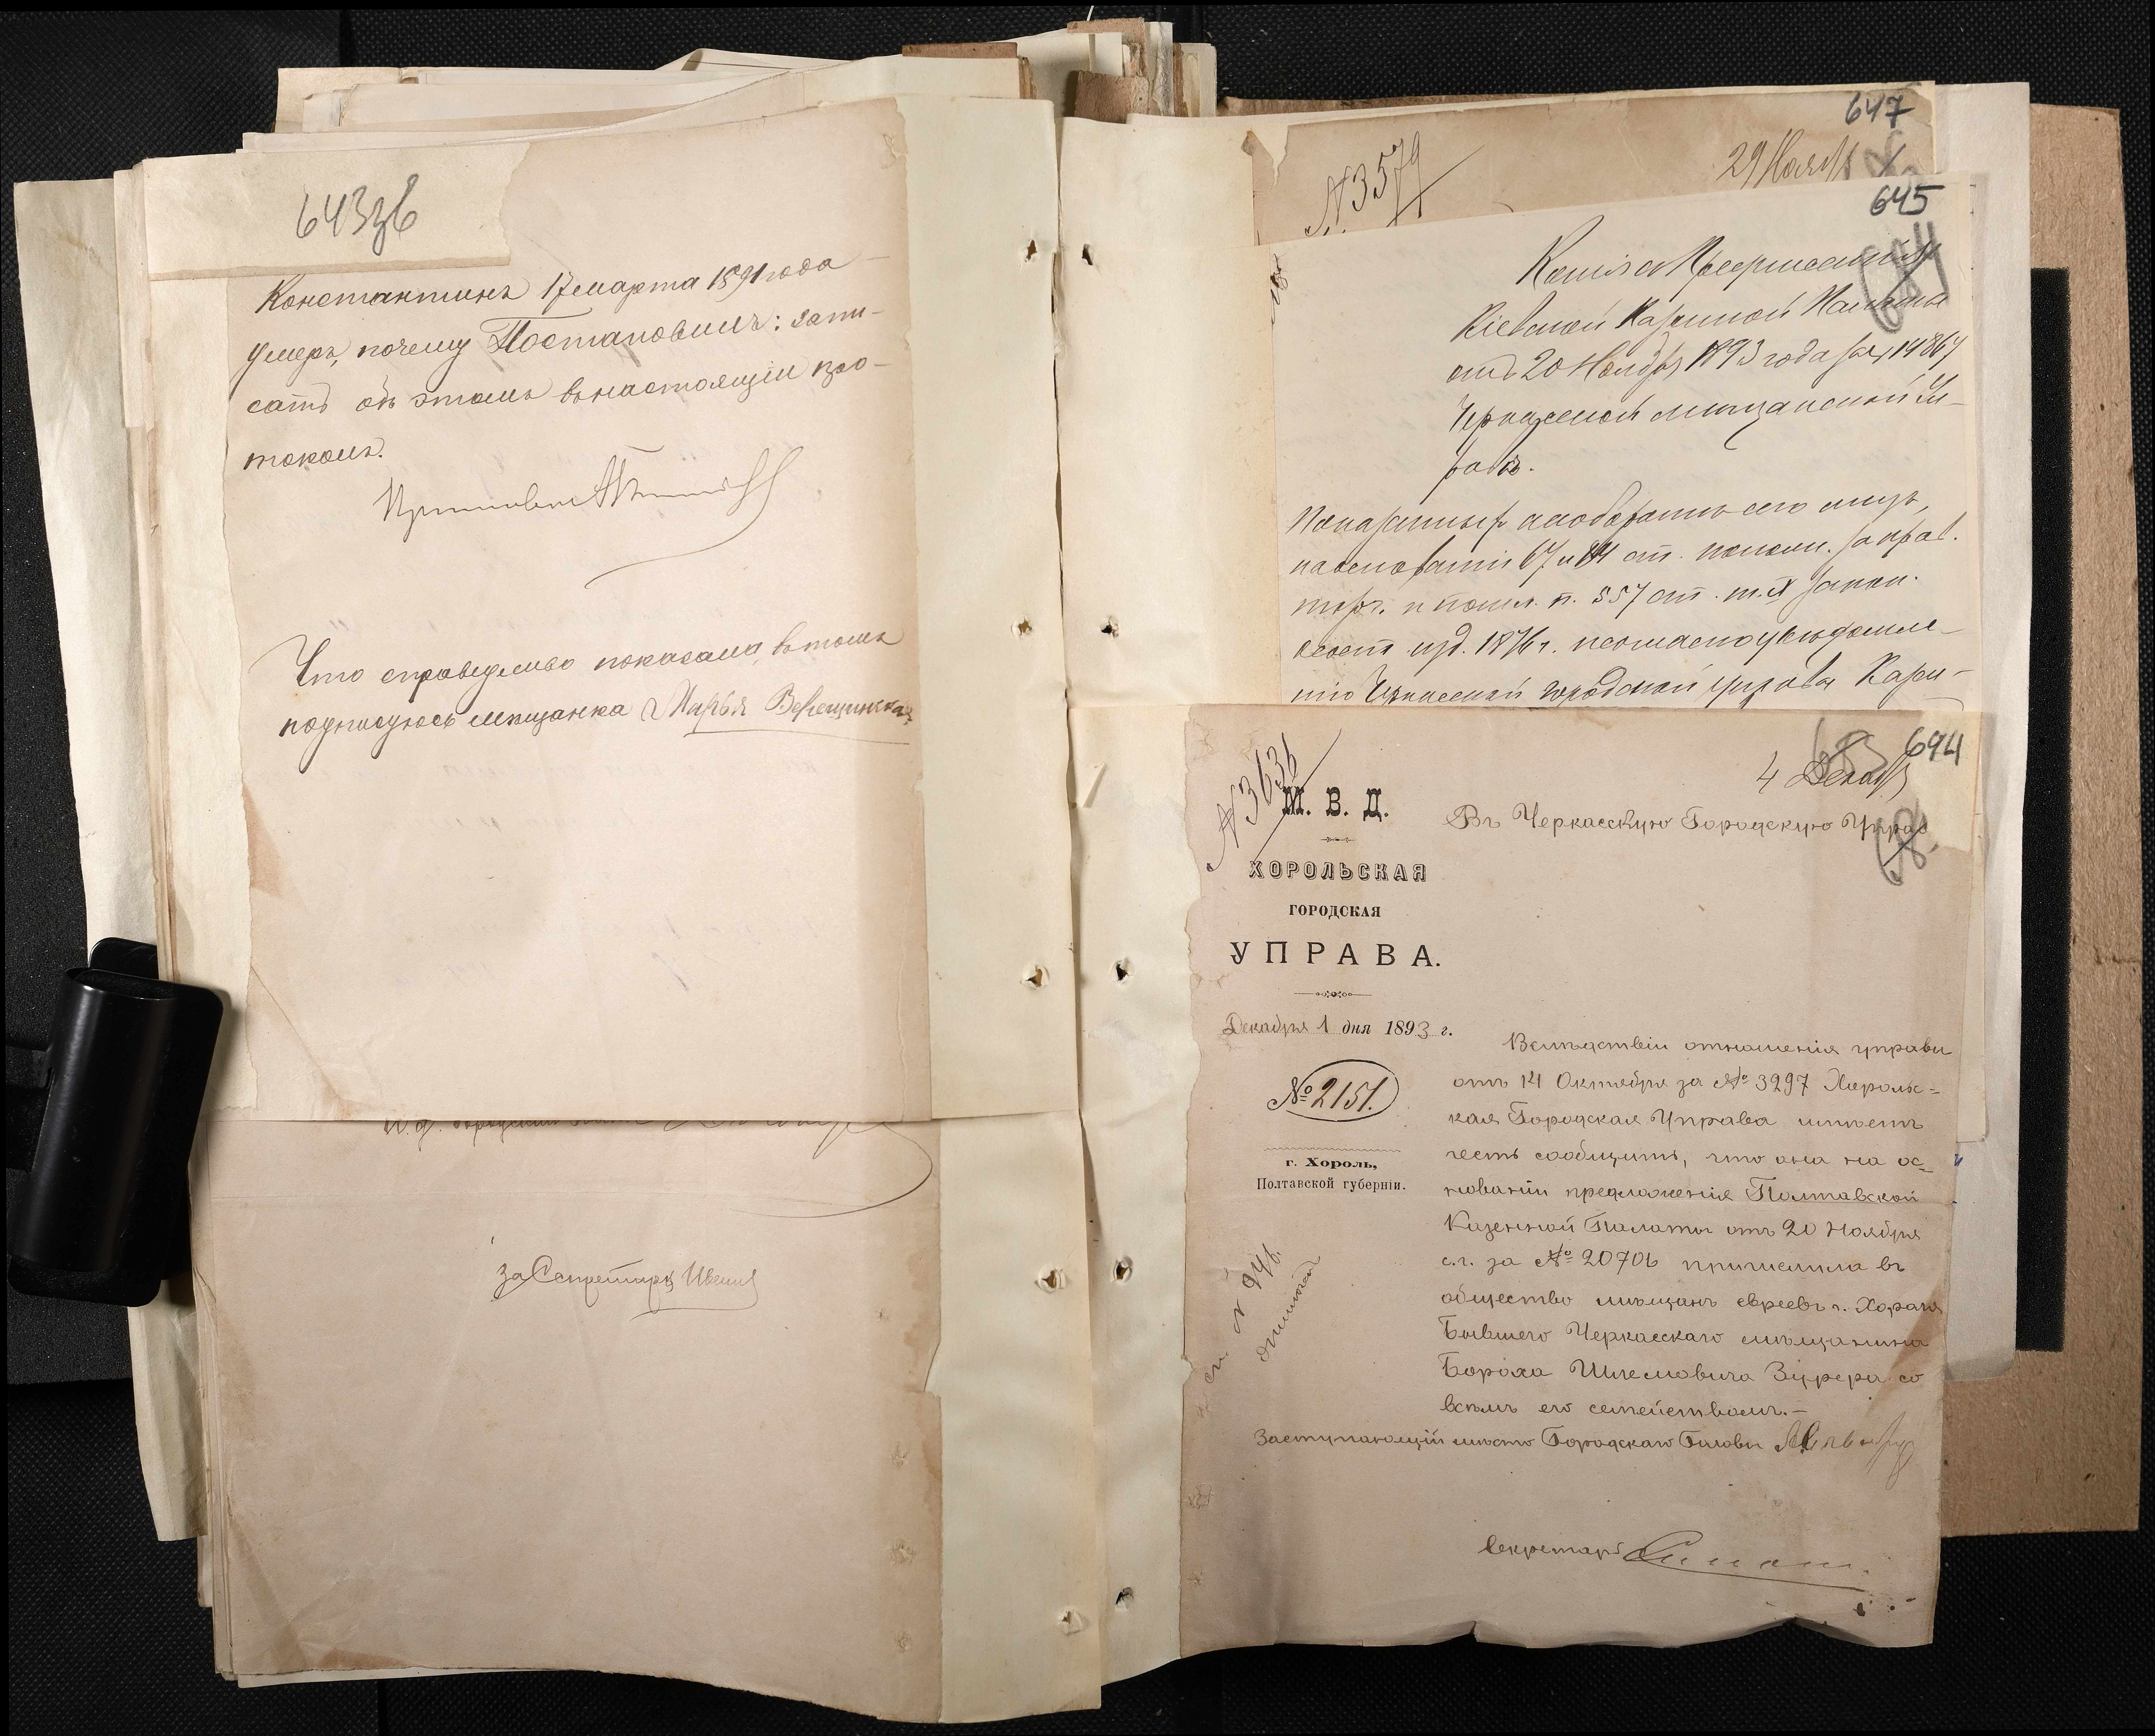 643зв
Константинъ 17 марта 1891 года
умеръ, почему Постановилъ: запи-
сать объ этомъ въ настоящій про-
токолъ.
Что справедливо показала, въ томъ
подписуюсь мѣщанка Марья Верещинская
за Секретаря
647
N 3579
29 Ноября
645
Копія съ Предписанія
Кіевской Казенной Палаты
отъ 20 Ноября 1893 года за № 19867
Черкасской мѣщанской Уп-
равѣ.
на основаніи 67 и 84 ст. полож. за прав.
торг. и пошл. п. 557 ст. т. IX закон.
сост. изд. 1876 г. и согласно увѣдомле-
нію Черкасской городской управы Казен-
644
N 3636
4 Декабр
М. В. Д.
ХОРОЛЬСКАЯ
ГОРОДСКАЯ
УПРАВА.
Декабря 1 дня 1893 г.
№ 2151.
г. Хороль,
Полтавской губерніи.
Въ Черкасскую Городскую Управ
Вслѣдствіи отношенія управы
отъ 14 Октября за № 3297 Хорольс=
кая Городская Управа имѣетъ
честь сообщить, что она на ос=
нованіи предложенія Полтавской
Казенной Палаты отъ 20 Ноября
с.г. за № 20706 причислила въ
общество мѣщанъ евреевъ г. Хорола
Бывшего Черкасскаго мѣщанина
Бороха Шлемовича Зуррера со
всѣмъ его семействомъ.-
Заступающій мѣсто Городскаго Головы
Секретарь